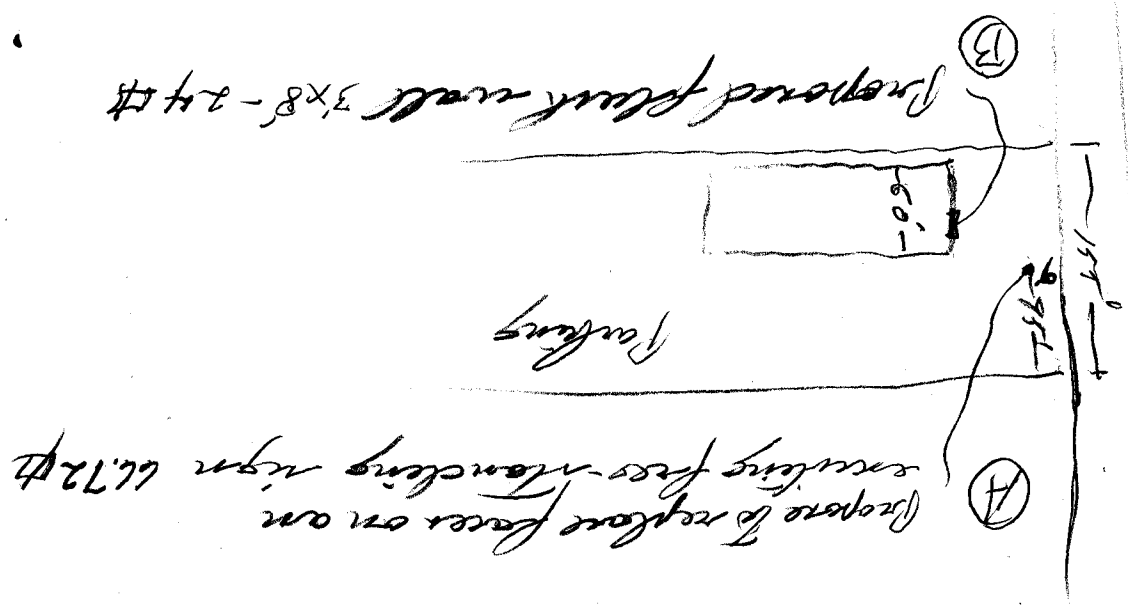 A
Propose to replace faces on an
existing free-standing sign 66.72 ⌷
Parking
60'
B
Proposed flush wall 3'x8' - 24 ⌷